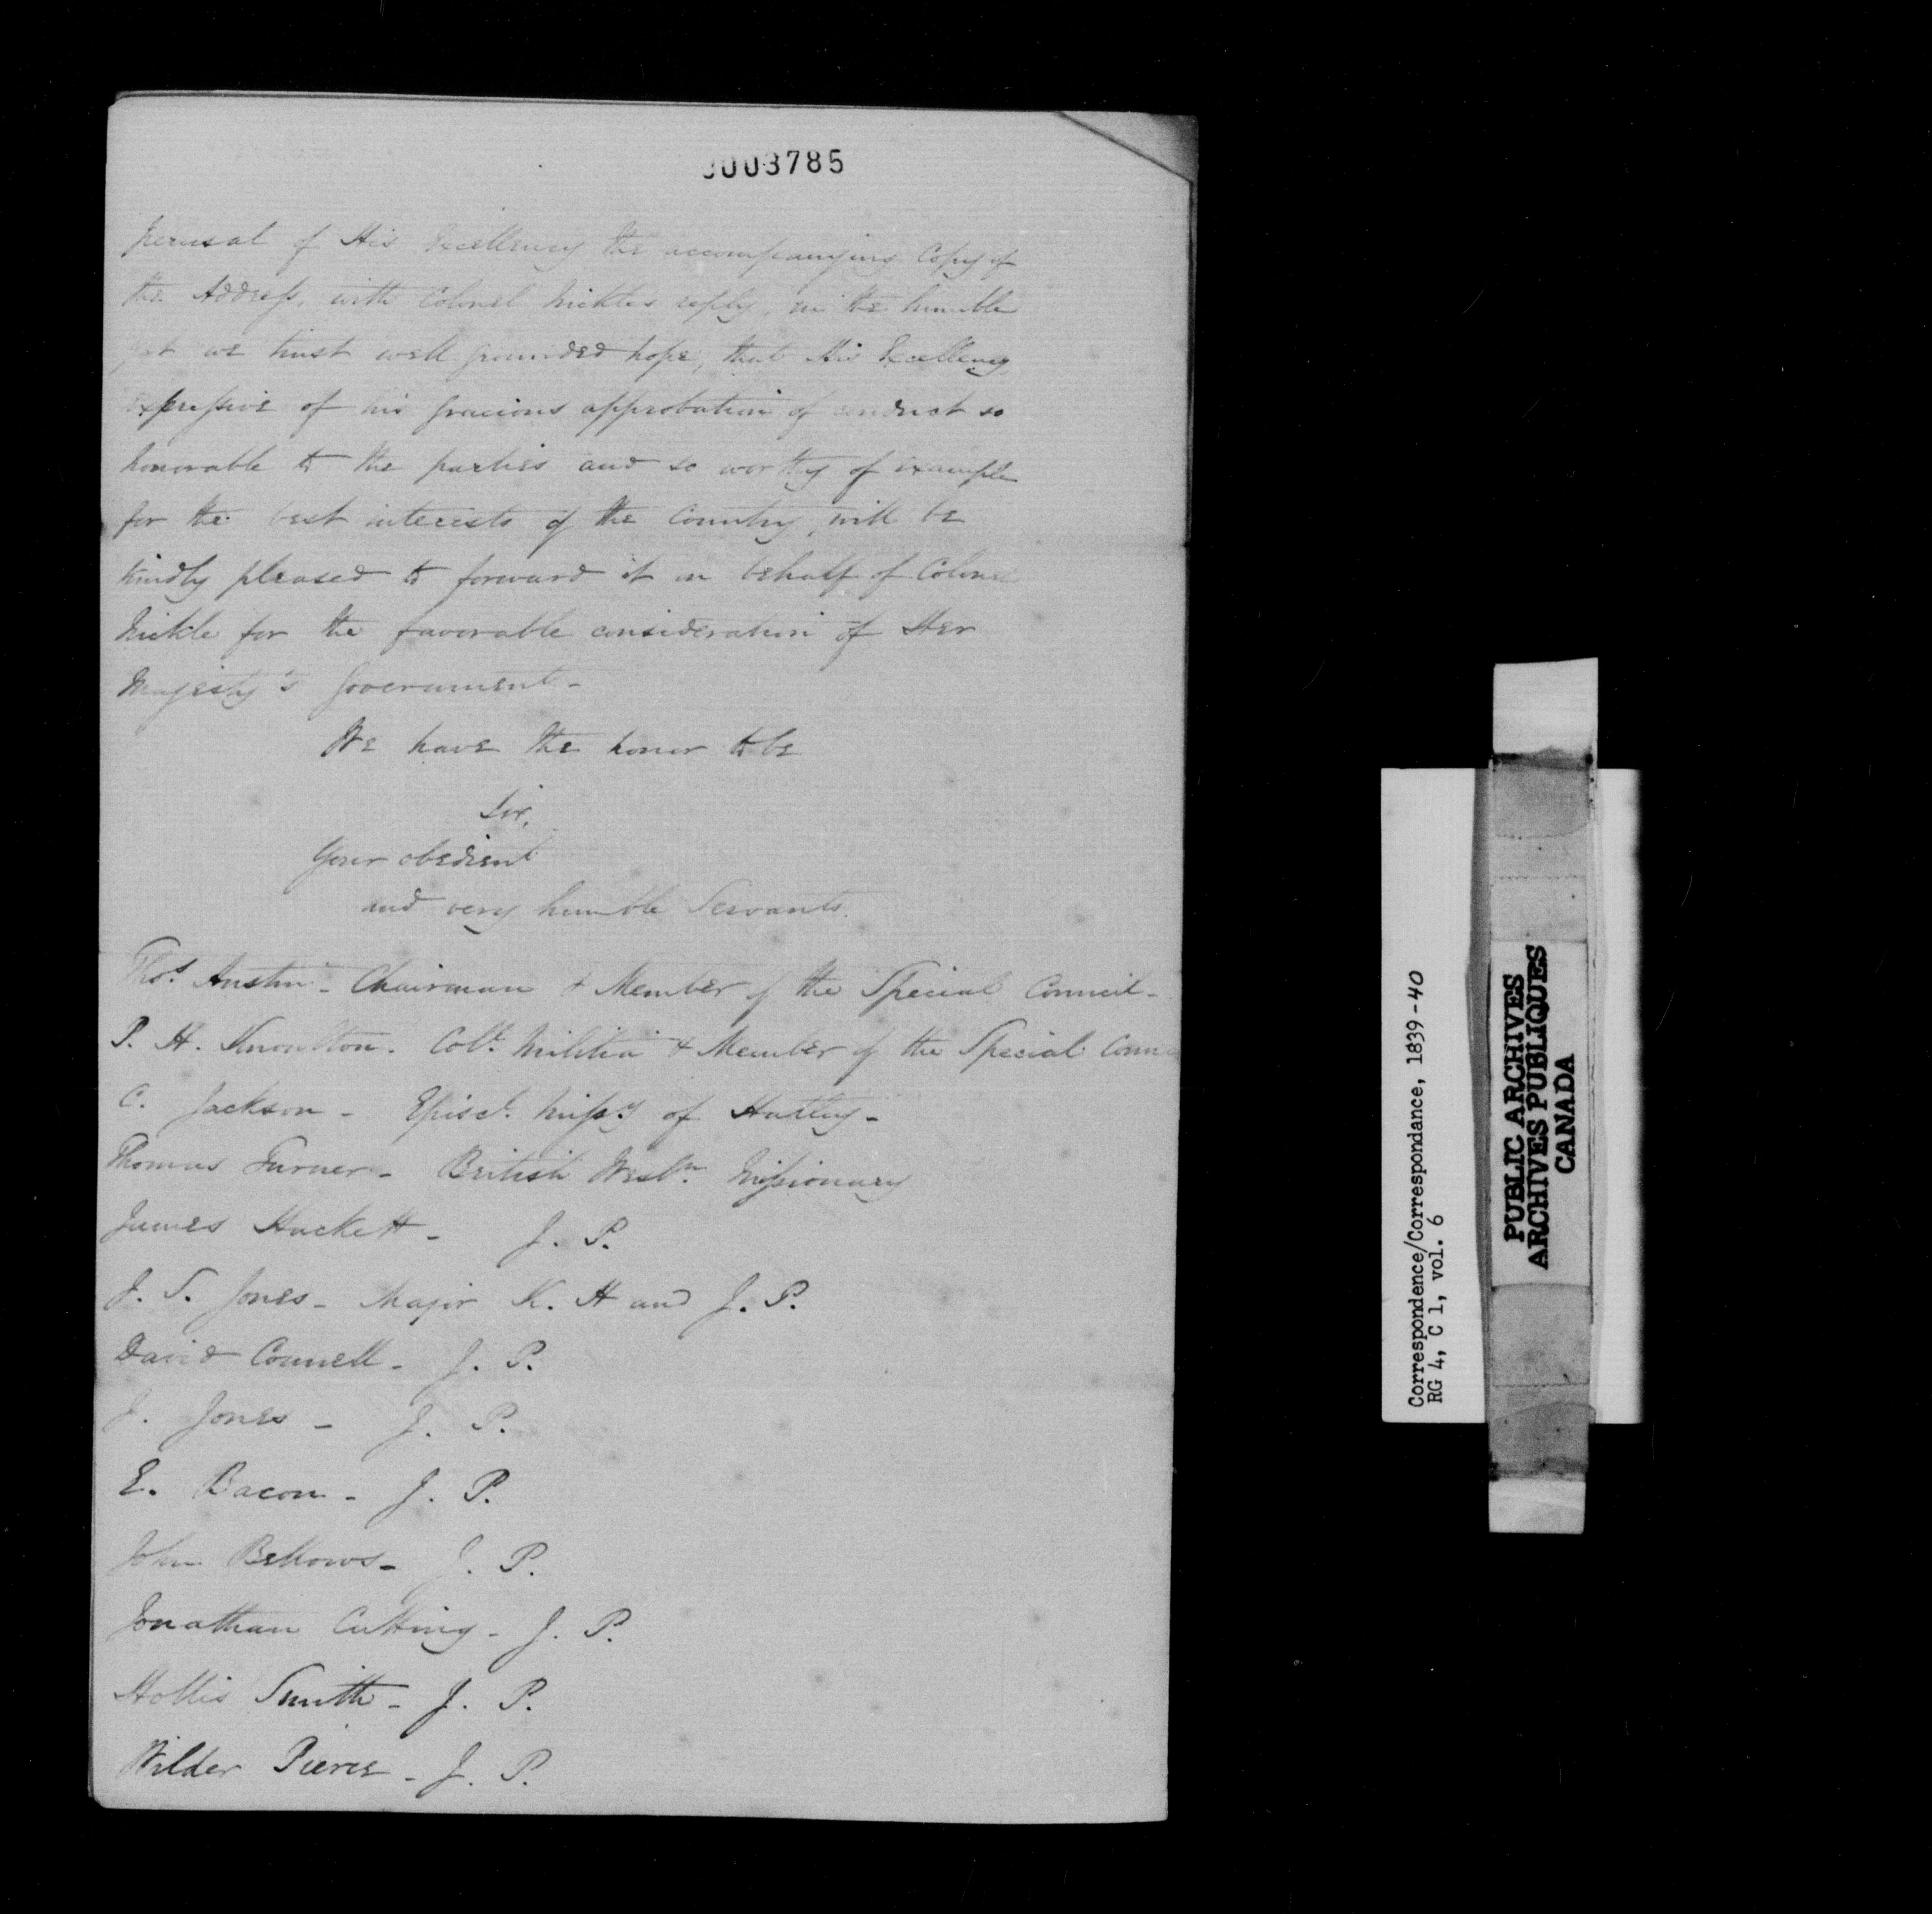 0003785
perusal of His Excellency the accompanying Copy of
the Address, with Colonel Nickle's reply, in the humble
yet we trust well grounded hope, that His Excellency,
expressive of his gracious approbation of conduct so
honorable to the parties and so worthy of example
for the best interests of the Country, will be
kindly pleased to forward it on behalf of Colonel
Nickle for the favorable consideration of Her
Majesty's Government -
We have the honor to be
Sir,
Your obedient
and very humble Servants.
Thos. Austin - Chairman & Member of the Special Council -
P. H. Knowlton. Col. Militia & Member of the Special Counc
C. Jackson - Episcl. Missy of Hatley -
Thomas Turner - British Wesln. Missionary
James Hackett - J. P.
J. S. Jones - Major K. H and J. P.
David Connell - J. P.
J. Jones - J. P.
E. Bacon - J. P.
John Bellows - J. P.
Jonathan Cutting - J. P.
Hollis Smith - J. P.
Wilder Pierce - J. P.
Correspondence/Correspondance, 1839-40
RG 4, C 1, vol. 6
PUBLIC ARCHIVES
ARCHIVES PUBLIQUES
CANADA